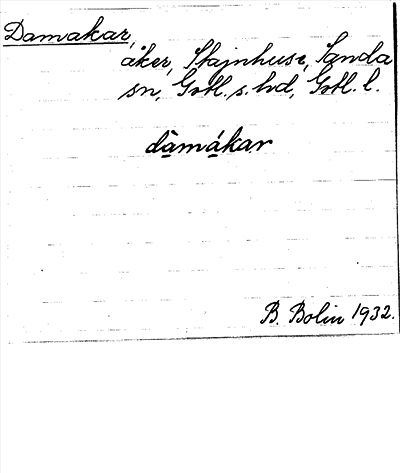 Damakar,
åker, Stajnhuse, Sanda
sn, Gotl. s. hd, Gotl. l.
dàmákar
B. Bolin 1932.